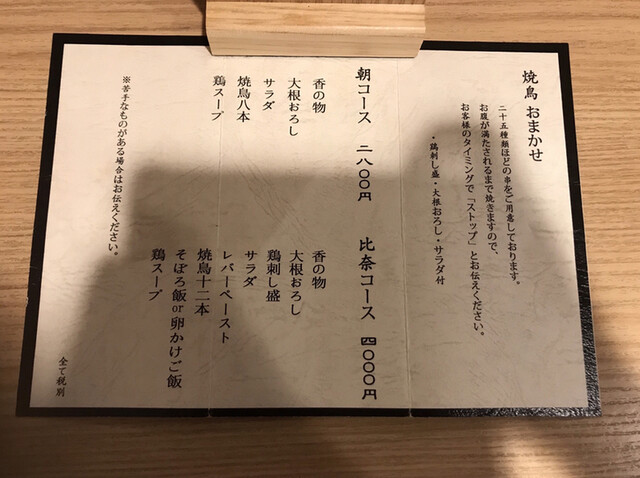 焼鳥 おまかせ
二十五種類ほどの串をご用意しております。
お腹が満たされるまで焼きますので、
お客様のタイミングで「ストップ」とお伝えください。
・鶏刺し盛・大根おろし・サラダ付
朝コース 二八〇〇円
香の物
大根おろし
サラダ
焼鳥八本
鶏スープ
比奈コース 四〇〇〇円
香の物
大根おろし
鶏刺し盛
サラダ
レバーペースト
焼鳥十二本
そぼろ飯or卵かけご飯
鶏スープ
※苦手なものがある場合はお伝えください。
全て税別